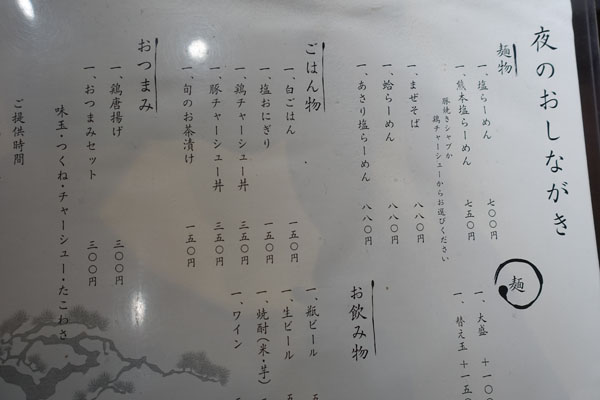 夜のおしながき
麺物
一、塩らーめん 七〇〇円
一、熊本塩らーめん 七五〇円
豚焼きシャブか
鶏チャーシューからお選びください
一、まぜそば 八八〇円
一、蛤らーめん 八八〇円
一、あさり塩らーめん 八八〇円
ごはん物
一、白ごはん 一五〇円
一、塩おにぎり 一五〇円
一、鶏チャーシュー丼 三五〇円
一、豚チャーシュー丼 三五〇円
一、旬のお茶漬け 一五〇円
おつまみ
一、鶏唐揚げ 三〇〇円
一、おつまみセット 三〇〇円
味玉・つくね・チャーシュー・たこわさ
ご提供時間
麺
一、大盛 +一〇
一、替え玉 +一五
お飲み物
一、瓶ビール 五
一、生ビール 五
一、焼酎(米・芋)
一、ワイン